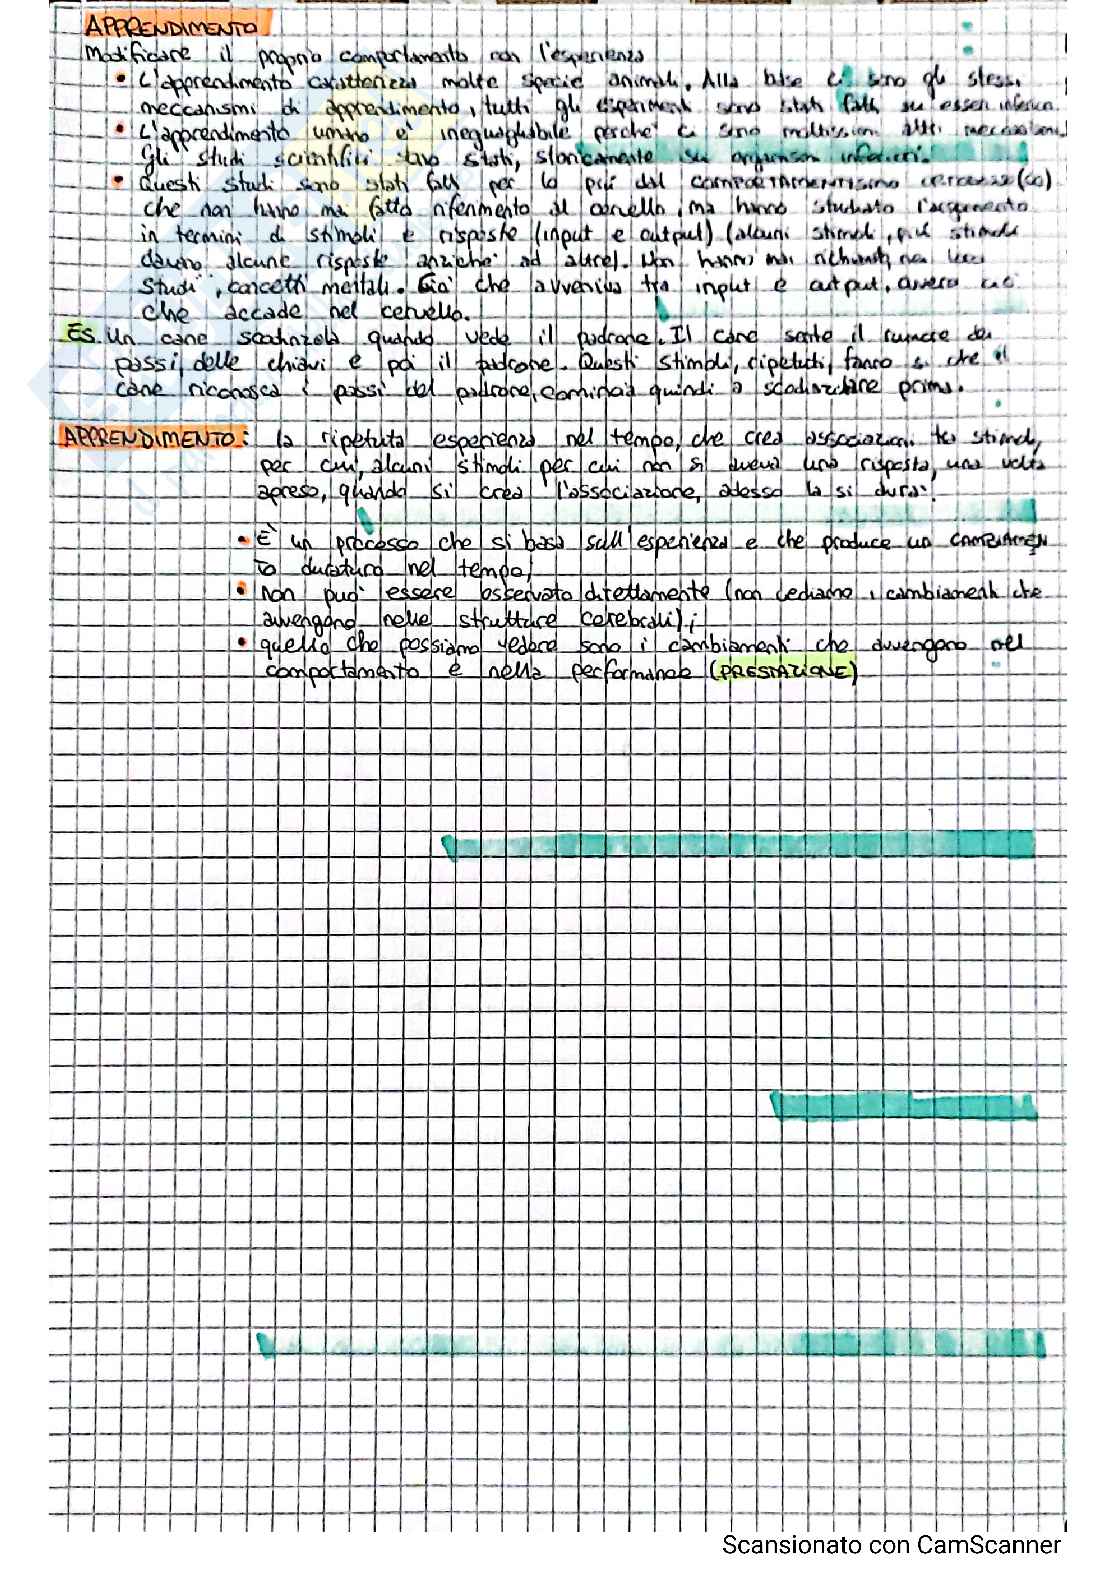 APPRENDIMENTO
Modificare il proprio comportamento con l'esperienza
• L'apprendimento caratterizza molte specie animali. Alla base ci sono gli stessi
meccanismi di apprendimento, tutti gli esperimenti sono stati fatti su esseri inferiori.
• L'apprendimento umano è ineguagliabile perché ci sono moltissimi altri meccanismi.
Gli studi scientifici sono stati, storicamente su organismi inferiori.
• Questi studi sono stati fatti per lo più dal COMPORTAMENTISMO
che non hanno mai fatto riferimento al cervello, ma hanno studiato l'argomento
in termini di stimoli e risposte (input e output) (alcuni stimoli, più stimoli
davano alcune risposte anziché ad altre). Non hanno mai richiamato, nei loro
studi, concetti mentali. Ciò che avveniva tra input e output, ovvero ciò
che accade nel cervello.
ES Un cane scodinzola quando vede il padrone. Il cane sente il rumore dei
passi, delle chiavi e poi il padrone. Questi stimoli, ripetuti, fanno sì che il
cane riconosca i passi del padrone, comincia quindi a scodinzolare prima.
APPRENDIMENTO: la ripetuta esperienza nel tempo, che crea associazioni tra stimoli,
per cui, alcuni stimoli per cui non si aveva una risposta, una volta
apreso, quando si crea l'associazione, adesso la si
• È un processo che si basa sull'esperienza e che produce un CAMBIAMEN
TO duraturo nel tempo;
• non può essere osservato direttamente (non vediamo i cambiamenti che
avvengono nelle strutture cerebrali);
• quello che possiamo vedere sono i cambiamenti che avvengono nel
comportamento e nella performance (PRESTAZIONE)
Scansionato con CamScanner